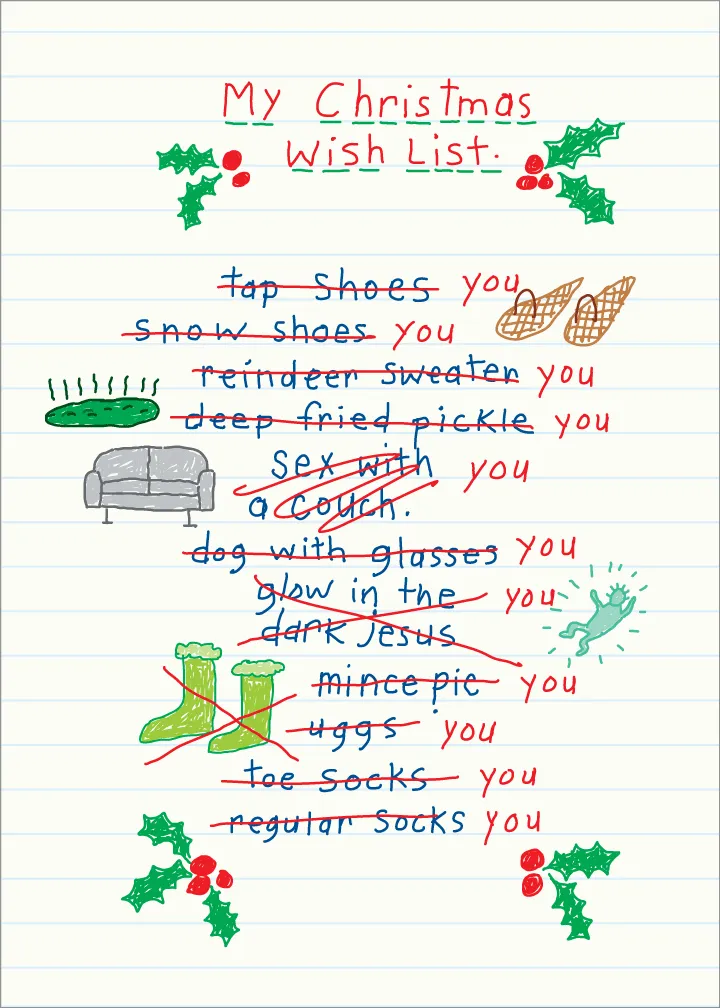 My Christmas
Wish List.
tap shoes you
snow shoes you
reindeer sweater you
deep fried pickle you
sex with you
a couch.
dog with glasses you
glow in the you
dark Jesus
mince pie you
uggs you
toe socks you
regular socks you